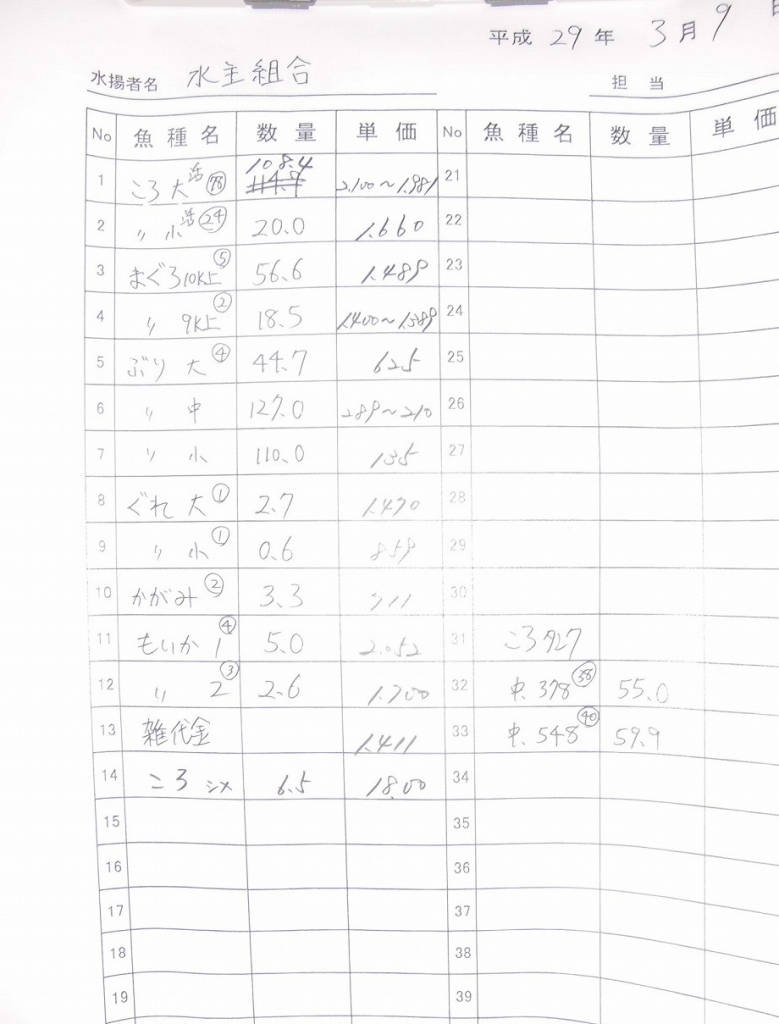 平成 29 年 3 月 9 日
水揚者名 水主組合 担 当
No 魚種名 数量 単価 No 魚種名 数量 単価
1 ころ 大 活 78 108.4 2.100〜1.981 21
2 〃 小 活 24 20.0 1.660 22
3 まぐろ10K上 5 56.6 1.489 23
4 〃 9K上 2 18.5 1.400〜1.389 24
5 ぶり 大 4 44.7 625 25
6 〃 中 127.0 289〜210 26
7 〃 小 110.0 135 27
8 ぐれ 大 1 2.7 1.470 28
9 〃 小 1 0.6 859 29
10 かがみ 2 3.3 711 30
11 もいか 1 4 5.0 2.052 31 ころ 927
12 〃 2 3 2.6 1.700 32 中.378 38 55.0
13 雑代金 1.411 33 中.548 40 59.9
14 ころ シメ 6.5 18.00 34
15 35
16 36
17 37
18 38
19 39